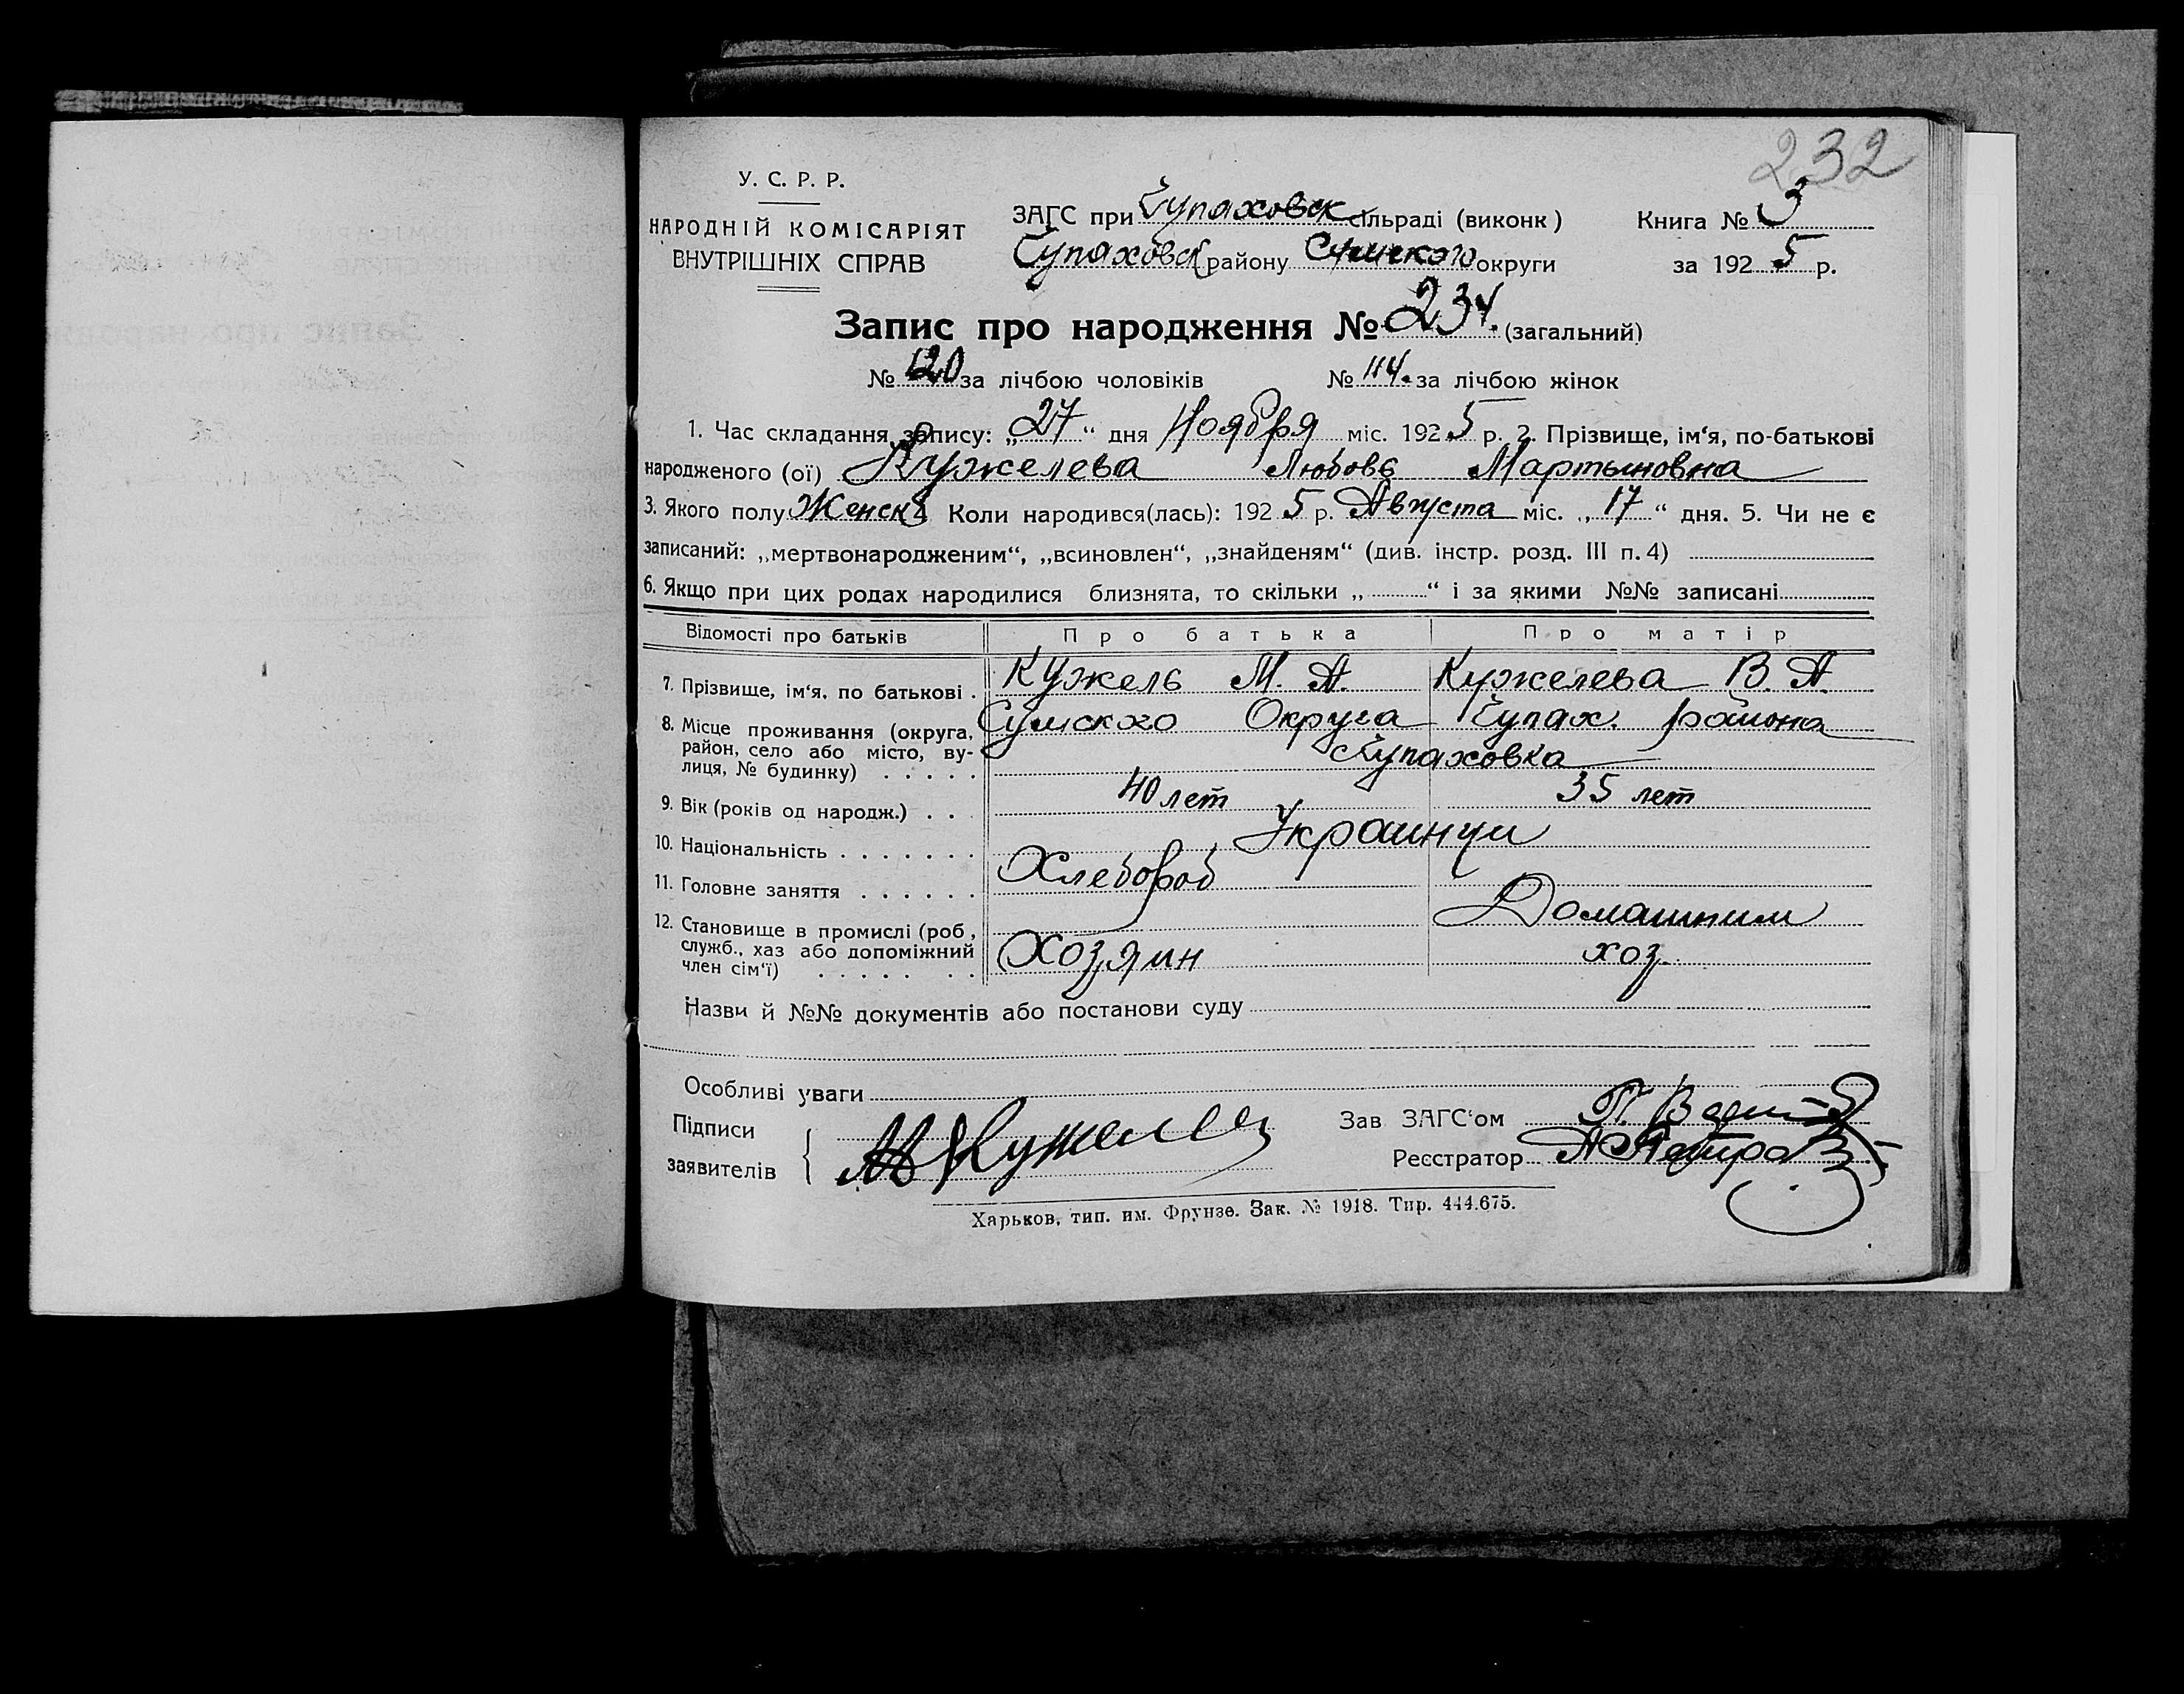 232
У. С. Р. Р.
НАРОДНІЙ КОМІСАРІЯТ
ВНУТРІШНІХ СПРАВ
ЗАГС при Чупаховск сільраді (виконк) Книга № 3
Чупаховск району Сумского округи за 1925 р.
Запис про народження № 234. (загальний)
№ 120 за лічбою чоловіків № 114. за лічбою жінок
1. Час складання запису: „27“ дня Ноября міс. 1925 р. 2. Прізвище, ім‘я, по-батькові
народженого (ої) Кужелева Любовь Мартыновна
3. Якого полу Женск 4. Коли народився(лась): 1925 р. Августа міс. „17“ дня. 5. Чи не є
записаний: „мертвонародженим“, „всиновлен“, „знайденям“ (див. інстр. розд. III п. 4)
6. Якщо при цих родах народилися близнята, то скільки „ “ і за якими №№ записані
Відомості про батьків Про батька Про матір
7. Прізвище, ім‘я, по батькові . Кужель М. А. Кужелева В. А.
8. Місце проживання (округа, Сумского Округа Чупах. района
район, село або місто, ву- Чупаховка
лиця, № будинку) . . . . .
9. Вік (років од народж.) . . . 40 лет 35 лет
10. Національність . . . . . . . Украинци
11. Головне заняття . . . . . . Хлебороб
12. Становище в промислі (роб, Домашним
служб., хаз або допоміжний Хозяин хоз.
член сім‘ї) . . . . . . .
Назви й №№ документів або постанови суду
Особливі уваги
Підписи Зав ЗАГС‘ом
заявителів Реєстратор
Харьков, тип. им. Фрунзе. Зак. № 1918. Тир. 444.675.